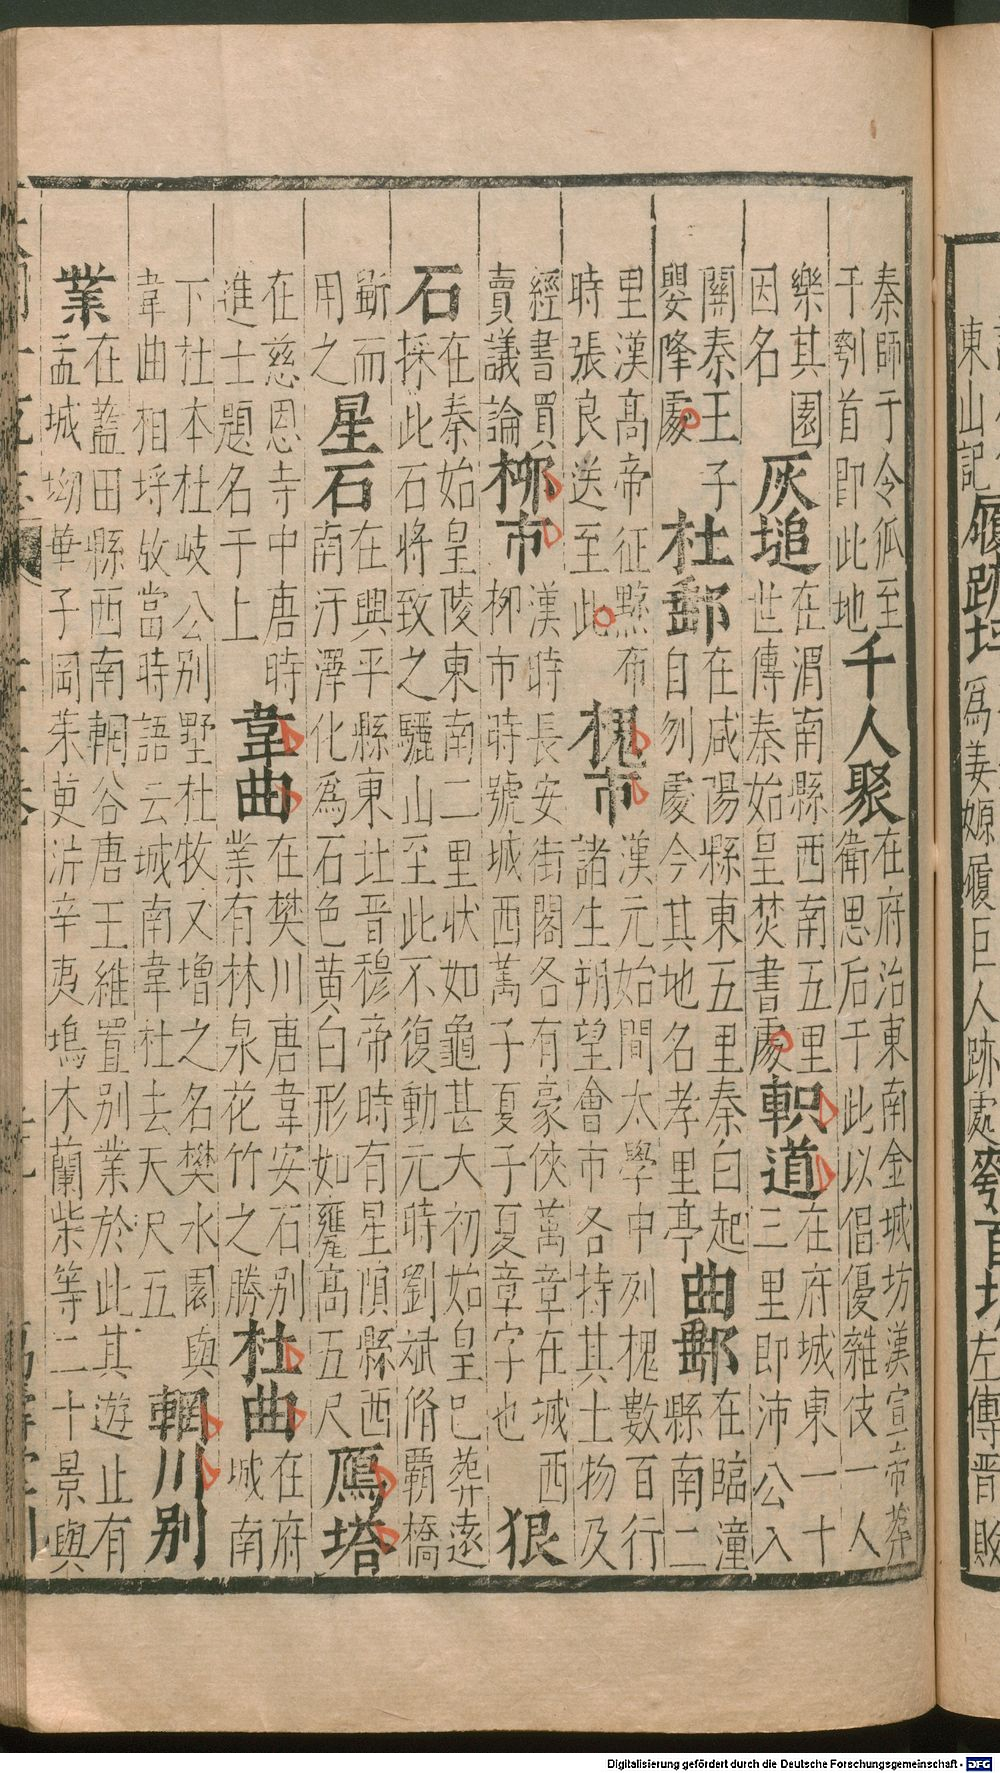 東山記履跡坪為姜嫄履巨人跡處刳首坊左傳晉敗
秦師于令狐至于刳首即此地千人聚在府治東南金城坊漢宣帝葬衛思后于此以倡優雜伎一人
樂其園因名灰塠在渭南縣西南五里世傳秦始皇焚書處軹道在府城東一十三里即沛公入
關秦王子嬰降處杜郵在咸陽縣東五里秦白起自刎處今其地名孝里亭曲郵在臨潼縣南二
里漢高帝征黥布時張良送至此槐市漢元始間太學中列槐數百行諸生朔望會市各持其土物及
經書買賣議論柳市漢時長安街閣各有豪俠萬章在城西柳市時號城西萬子夏子夏章字也狠
石在秦始皇陵東南二里狀如龜甚大初始皇巳葬遠採此石將致之驪山至此不復動元時劉斌脩霸橋
斷而用之星石在興平縣東北晉穆帝時有星隕縣西南汙澤化為石色黃白形如甕高五尺鴈塔
在慈恩寺中唐時進士題名于上韋曲在樊川唐韋安石別業有林泉花竹之勝杜曲在府城南
下杜本杜岐公別墅杜牧又增之名樊水園與韋曲相埒故當時語云城南韋杜去天尺五輞川別
業在藍田縣西南輞谷唐王維置別業於此其遊止有孟城坳華子岡茱萸沜辛夷塢木蘭柴等二十景與
Digitalisierung gefördert durch die Deutsche Forschungsgemeinschaft - DFG